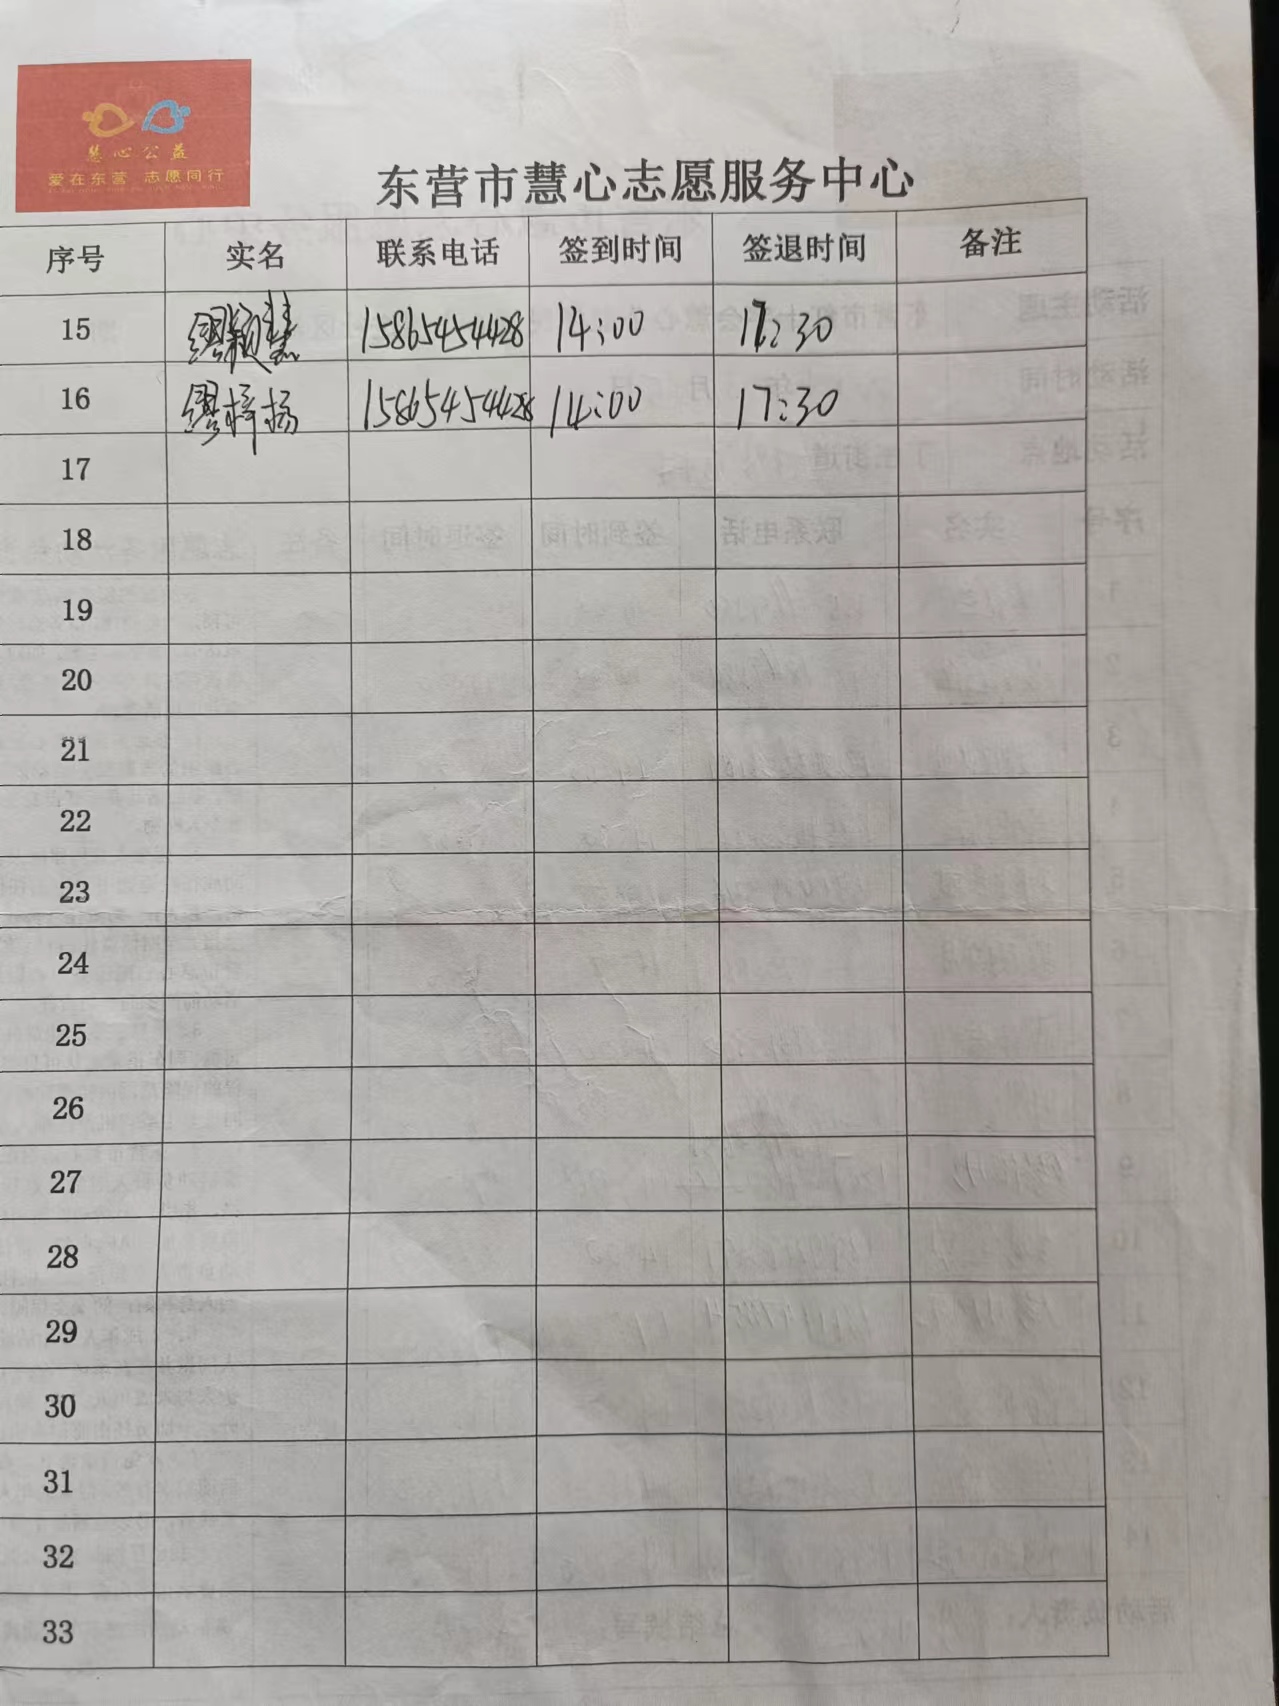 慧心公益
爱在东营 志愿同行
东营市慧心志愿服务中心
序号 实名 联系电话 签到时间 签退时间 备注
15 缪颖慧 15865454428 14:00 17:30
16 缪梓扬 15865454428 14:00 17:30
17
18
19
20
21
22
23
24
25
26
27
28
29
30
31
32
33